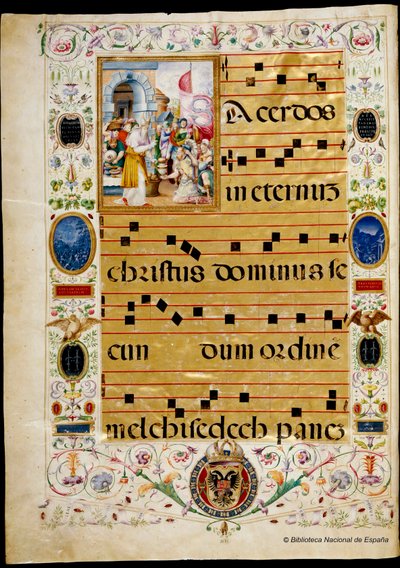 Acerdos
in eternuz
christus dominus se
cun dum ordinē
melchisedech panez
© Biblioteca Nacional de España